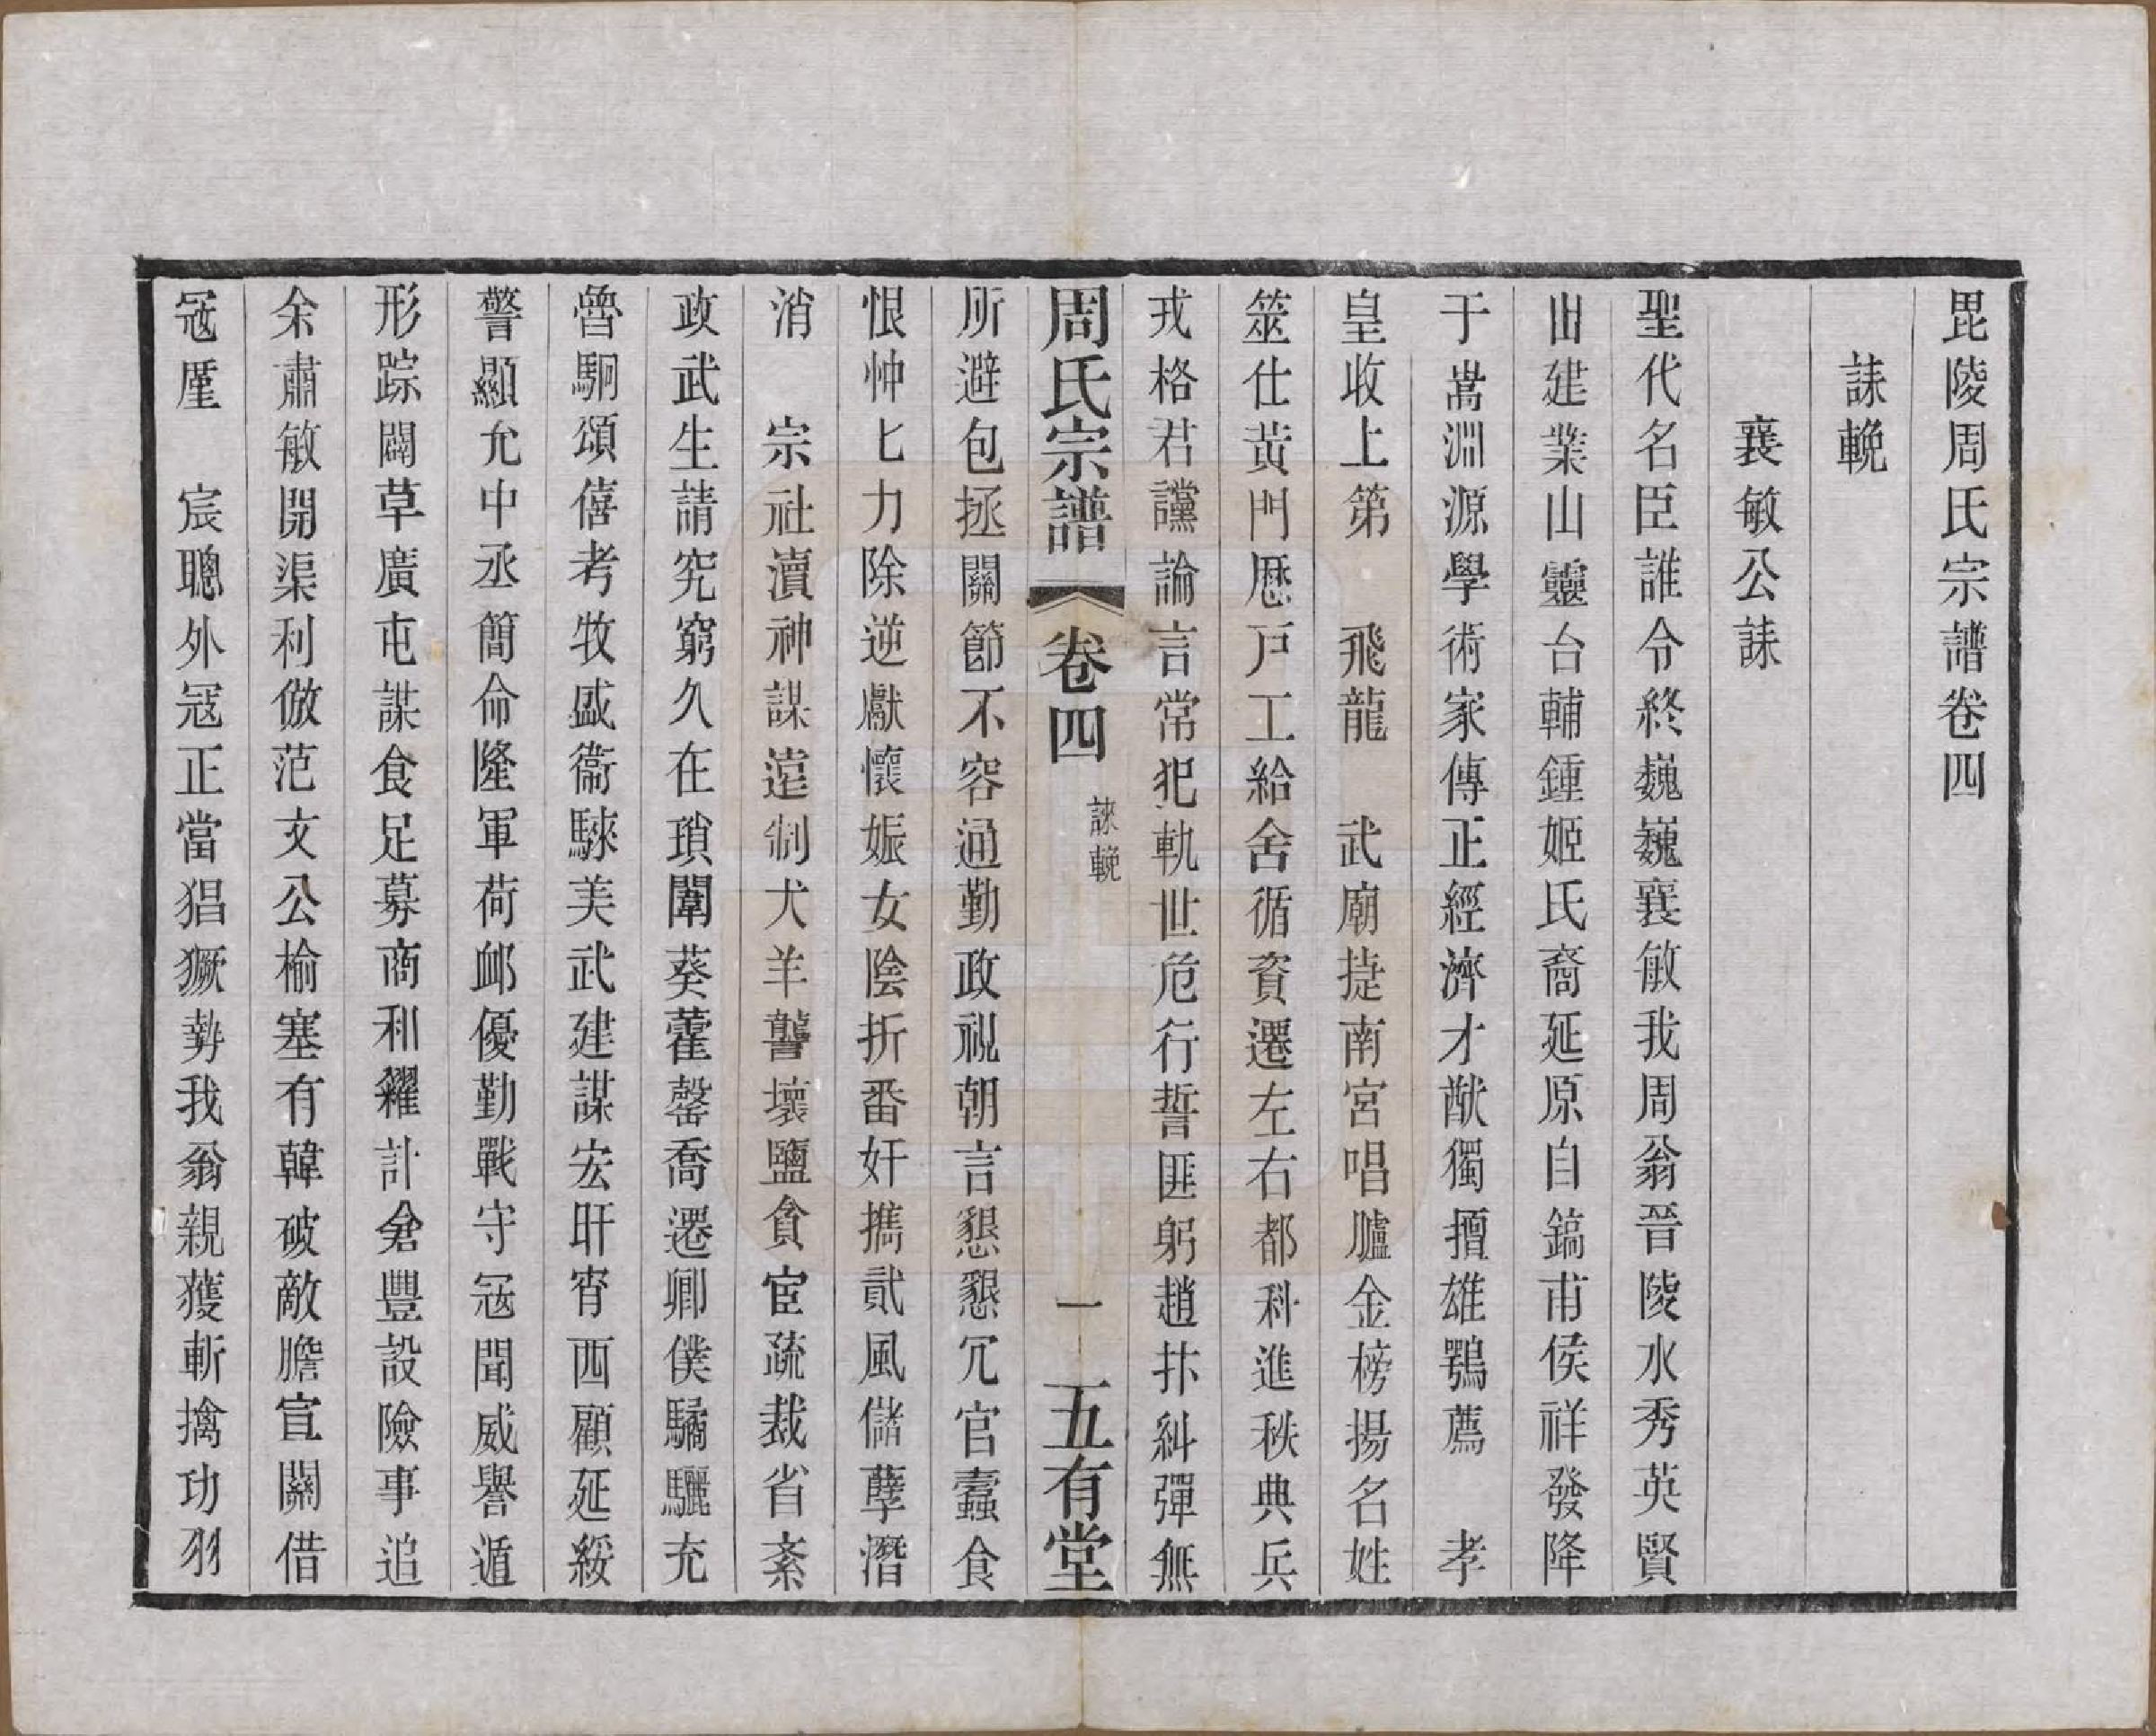 毘陵周氏宗譜卷四
誄輓
襄敏公誄
聖代名臣誰令終巍巍襄敏我周翁晉陵水秀英賢
出建業山靈台輔鍾姬氏裔延原自鎬甫侯祥發降
于嵩淵源學術家傳正經濟才猷獨擅雄鶚薦　孝
皇收上第　飛龍　武廟捷南宮唱臚金榜揚名姓
筮仕黃門厯戶工給舍循資遷左右都科進秩典兵
戎格君讜論言常犯軌世危行誓匪躬趙抃糾彈無
周氏宗譜　卷四　誄輓　一　五有堂
所避包拯關節不容通勤政視朝言懇懇冗官蠹食
恨忡忡力除逆獻懷娠女陰折番奸擕貳風儲孽潛
消　宗社瀆神謀遠制犬羊讋壞鹽貪宦疏裁省紊
政武生請究窮久在瑣闈葵藿罄喬遷卿僕驈驪充
魯駉頌僖考牧盛衞騋美武建謀宏旰宵西顧延綏
警顯允中丞簡命隆軍荷䘏優勤戰守冦聞威譽遁
形踪闢草廣屯謀食足募商利糴計倉豐設險事追
余肅敏開渠利倣范文公榆塞有韓破敵膽宣關借
冦厪　宸聰外冦正當猖獗勢我翁親獲斬擒功羽